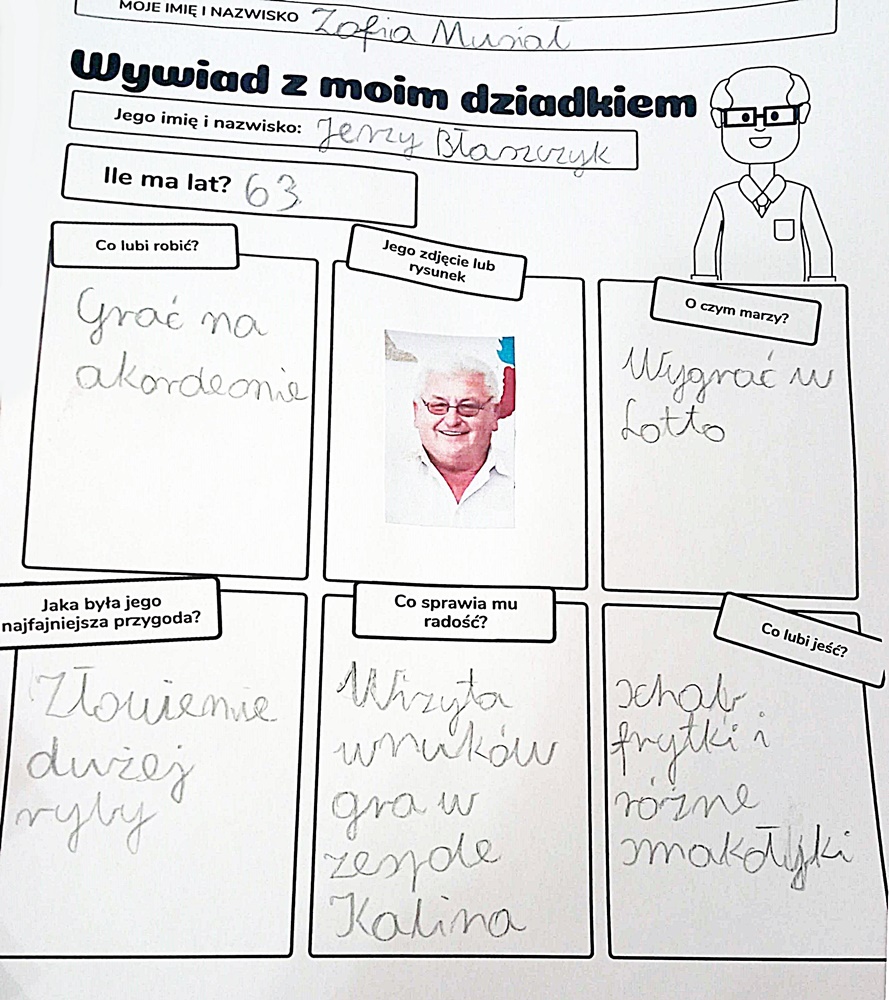 MOJE IMIĘ I NAZWISKO Zofia Musiał
Wywiad z moim dziadkiem
Jego imię i nazwisko: Jerzy Błaszczyk
Ile ma lat? 63
Co lubi robić?
Grać na
akordeonie
Jego zdjęcie lub
rysunek
O czym marzy?
Wygrać w
Lotto
Jaka była jego
najfajniejsza przygoda?
Złowienie
dużej
ryby
Co sprawia mu
radość?
Wizyta
wnuków
gra w
zespole
Kalina
Co lubi jeść?
schab
frytki i
różne
smakołyki